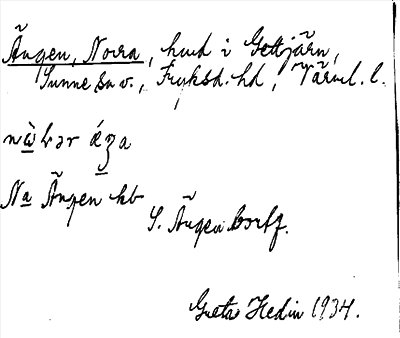 Ängen, Norra, hmd i Gettjärn,
Sunne sn v., Fryksd. hd, Värml. l.
Na Ängen hb
S. Ängen
Greta Hedin 1934.